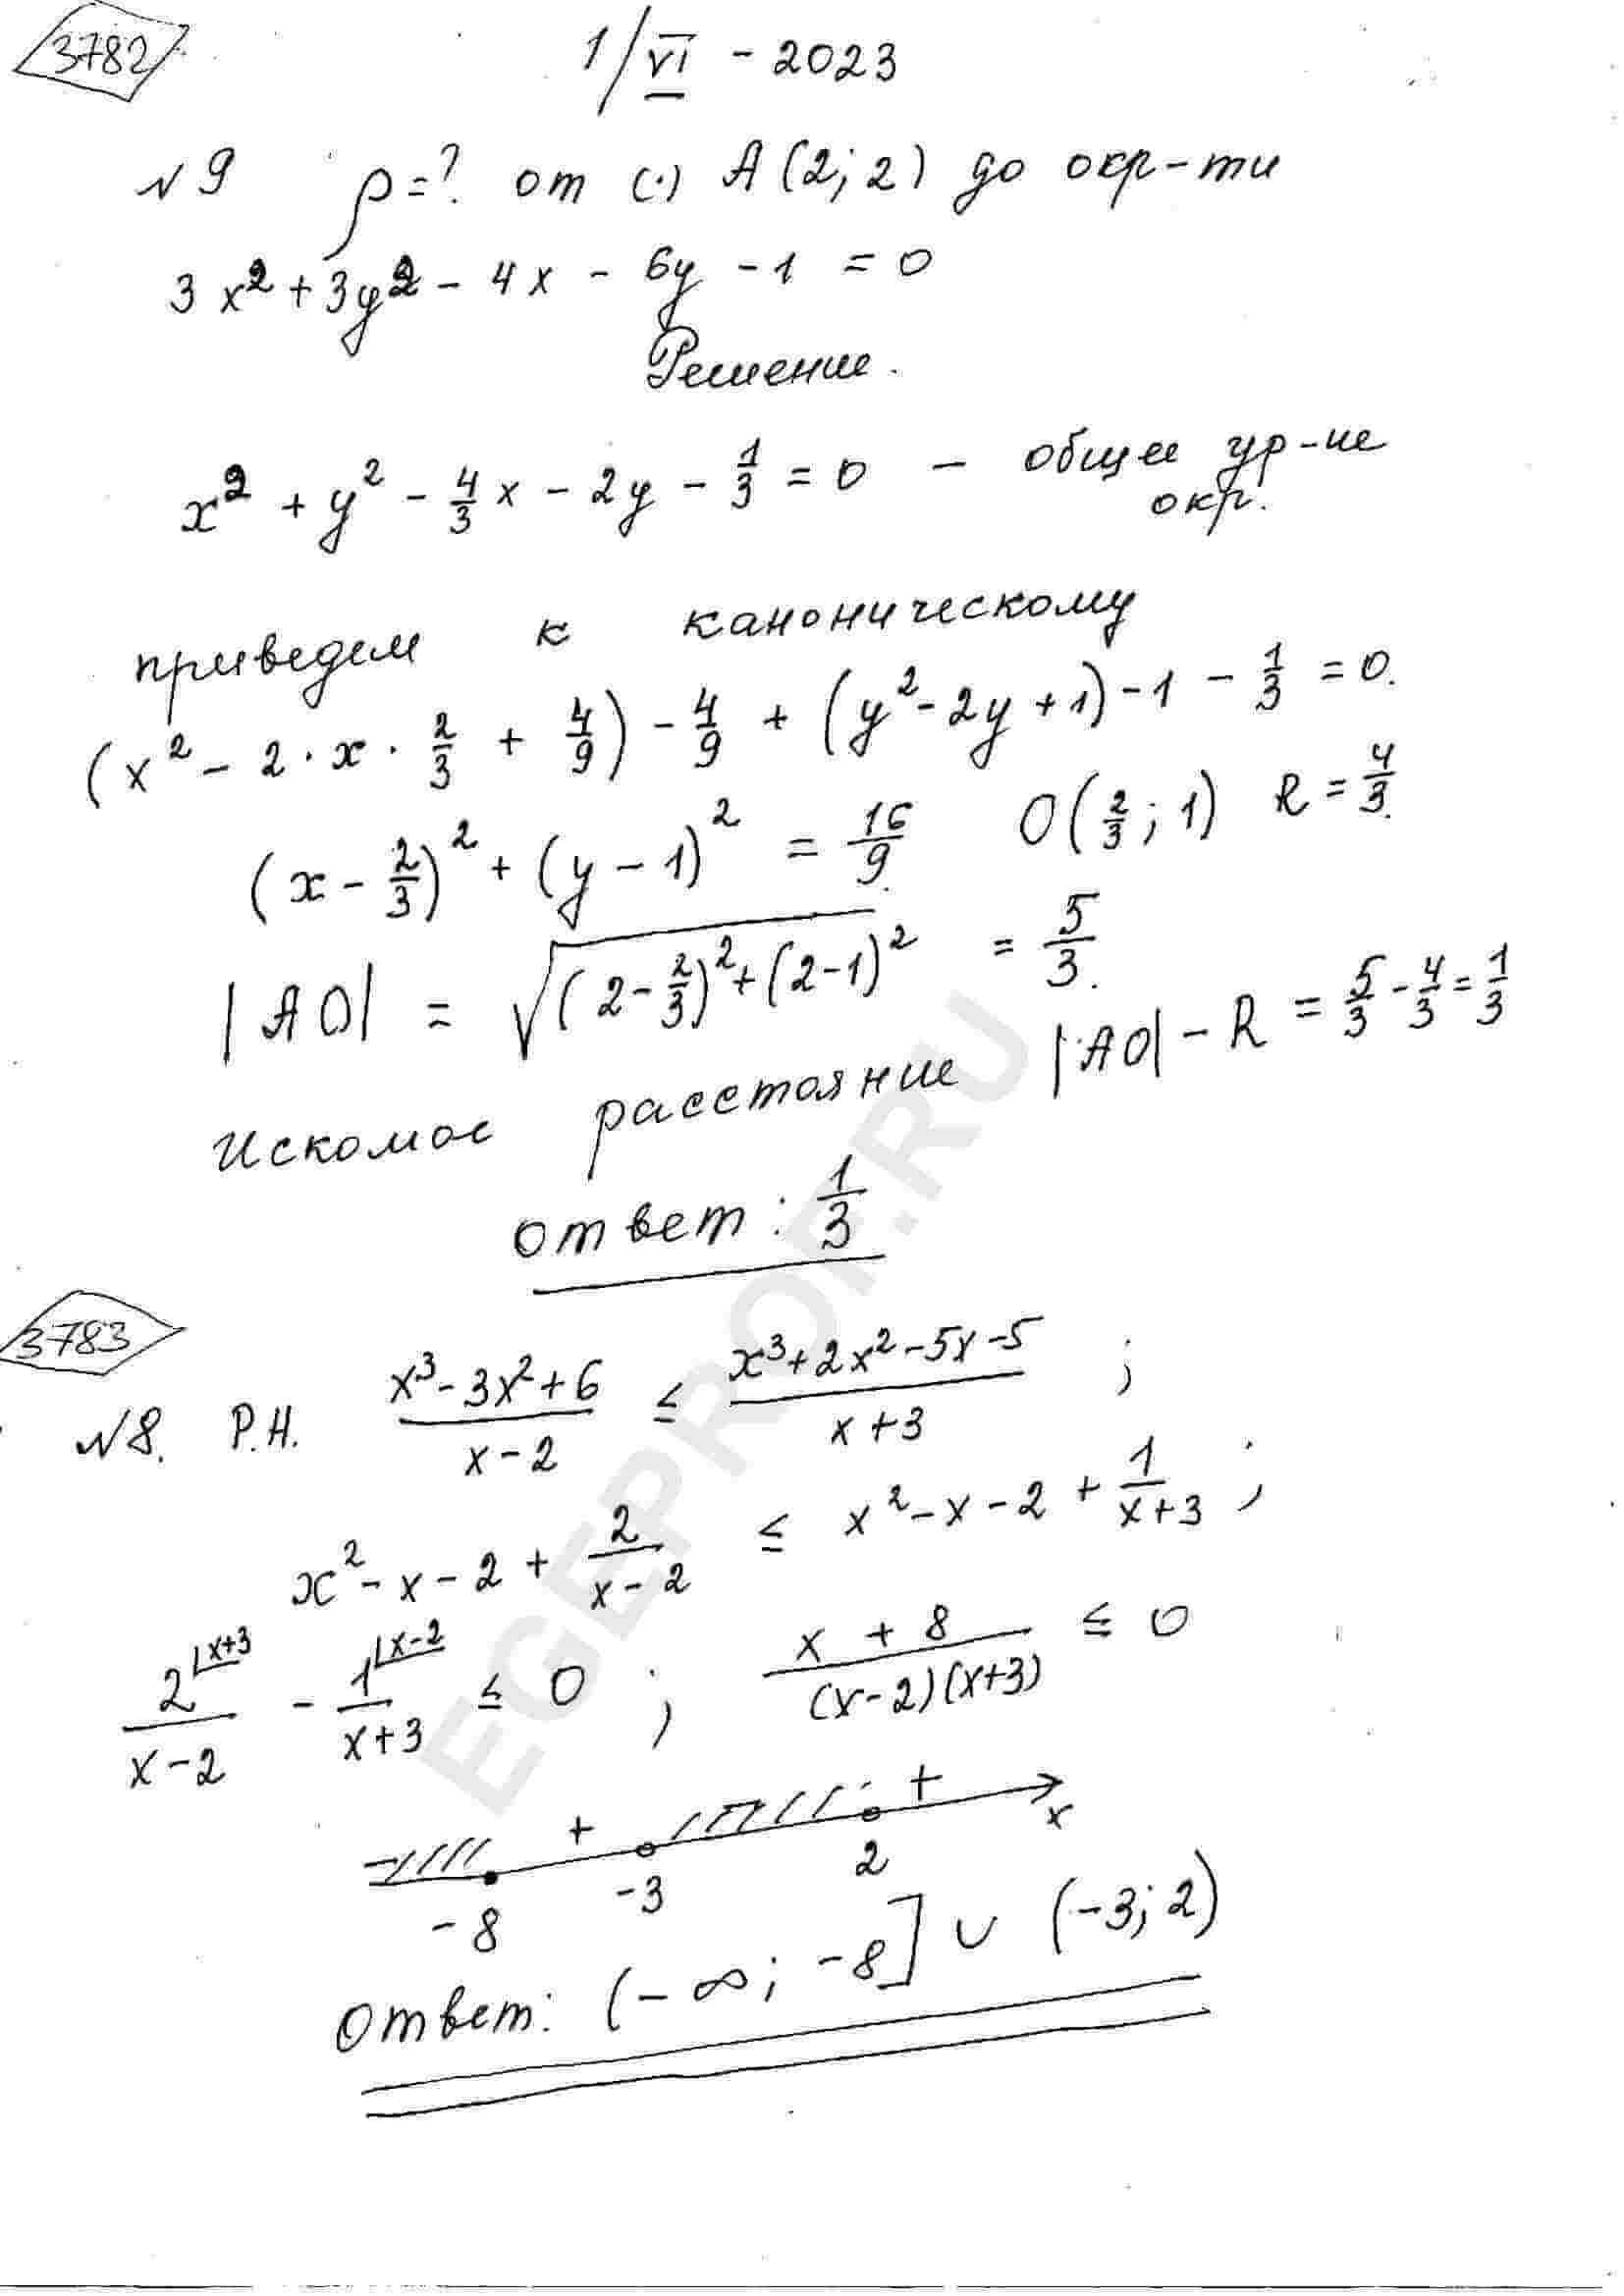 3782
1/VI - 2023
№9 ρ=? от (·) A(2; 2) до окр-ти
3x² + 3y² - 4x - 6y - 1 = 0
Решение.
x² + y² - 4/3 x - 2y - 1/3 = 0 - общее ур-ие
окр.
приведем к каноническому
(x² - 2·x·2/3 + 4/9) - 4/9 + (y² - 2y + 1) - 1 - 1/3 = 0.
(x - 2/3)² + (y - 1)² = 16/9 O(2/3; 1) R = 4/3.
|AO| = √((2 - 2/3)² + (2-1)²) = 5/3.
Искомое расстояние |AO| - R = 5/3 - 4/3 = 1/3
ответ: 1/3
3783
№8. Р.Н. (x³ - 3x² + 6)/(x - 2) ≤ (x³ + 2x² - 5x - 5)/(x + 3) ;
x² - x - 2 + 2/(x - 2) ≤ x² - x - 2 + 1/(x + 3) ;
2⌊x+3/(x - 2) - 1⌊x-2/(x + 3) ≤ 0 ; (x + 8)/((x-2)(x+3)) ≤ 0
- + - +
-8 -3 2 x
Ответ: (-∞; -8] ∪ (-3; 2)
EGEPROF.RU